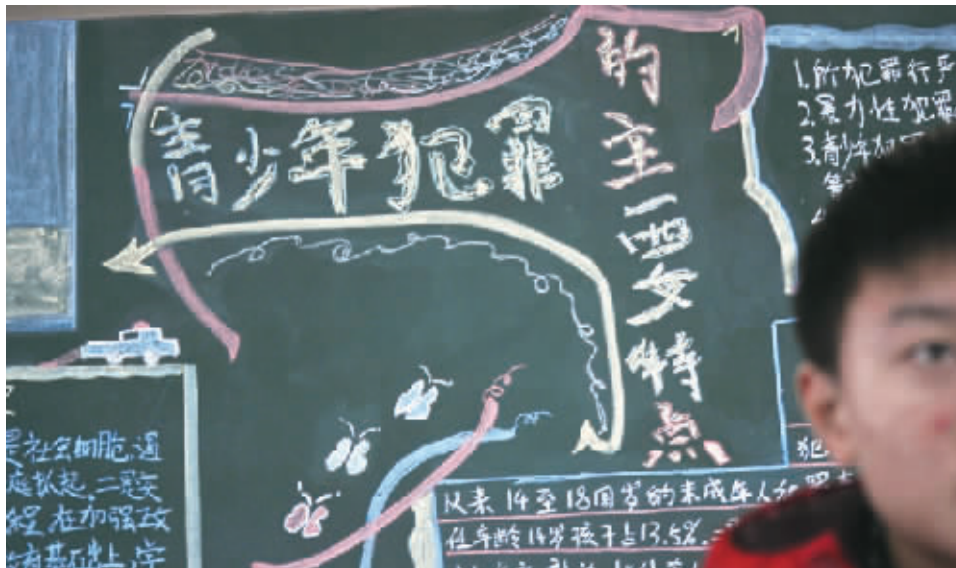 青少年犯罪
的主要特点
1.所犯罪行严
2.暴力性犯罪
3.青少年犯
是社会细胞,通
庭抓起,二是突
在加强政
有基础上,学
犯
从来14至18周岁的未成年人犯罪
14岁孩子占13.5%.